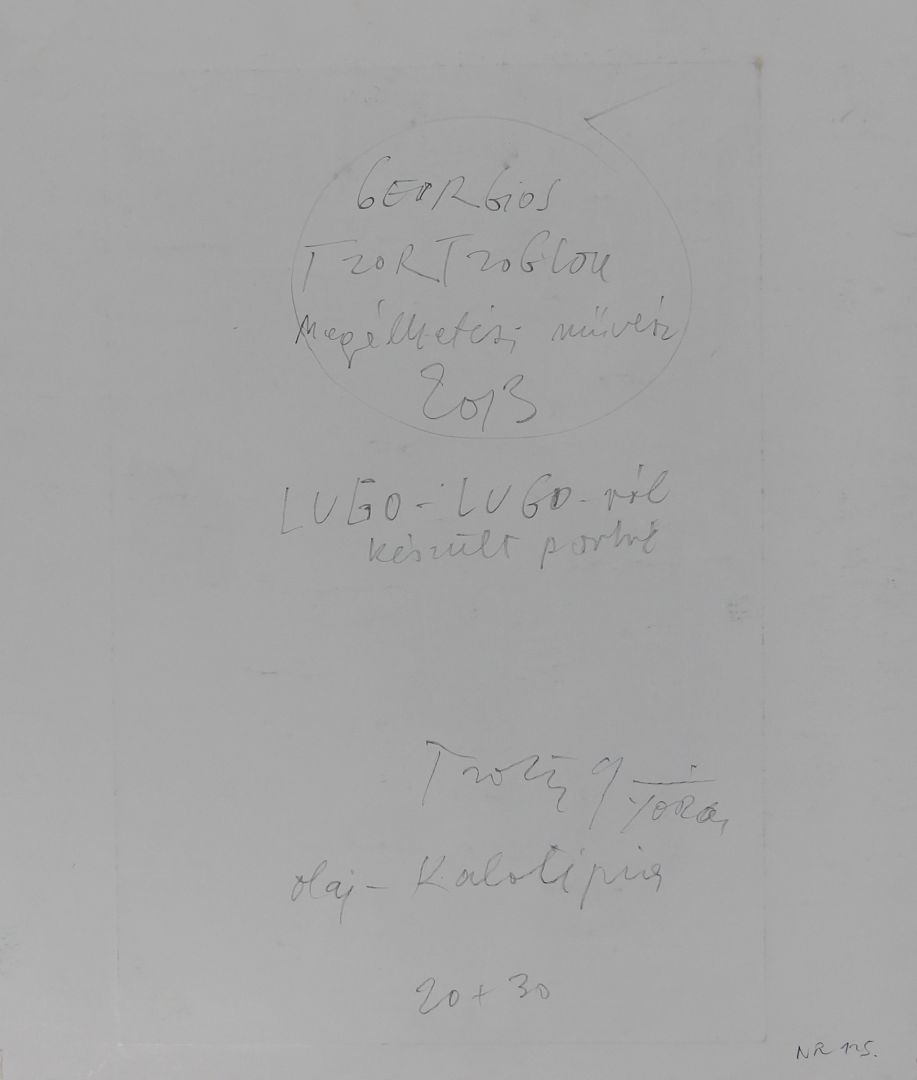 GEORGIOS
TZORTZOGLOU
Megélhetési művész
2013
LUGO-LUGO-ról
készült portré
olaj-Kalotípia
20+30
NR 125.